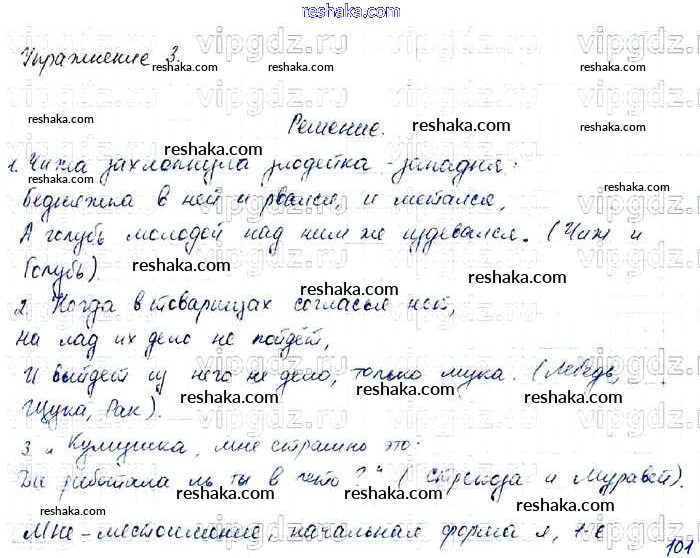 reshaka.com
Упражнение 3.
Решение.
1. Чижа захлопнула злодейка-западня:
Бедняжка в ней и рвался, и метался,
А голубь молодой над ним же издевался. (Чиж и
Голубь).
2. Когда в товарищах согласья нет,
На лад их дело не пойдёт,
И выйдет из него не дело, только мука. (Лебедь,
Щука, Рак).
3. „Кумушка, мне странно это:
Да работала ль ты в лето?" (Стрекоза и Муравей).
Мне - местоимение, начальная форма я, 1-е
101